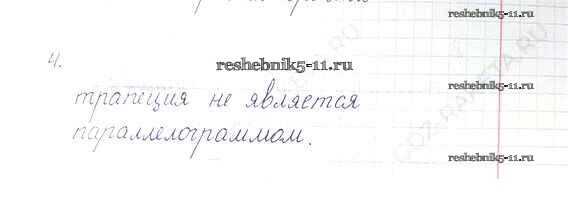 reshebnik5-11.ru
4.
reshebnik5-11.ru
reshebnik5-11.ru
трапеция не является
параллелограммом.
reshebnik5-11.ru